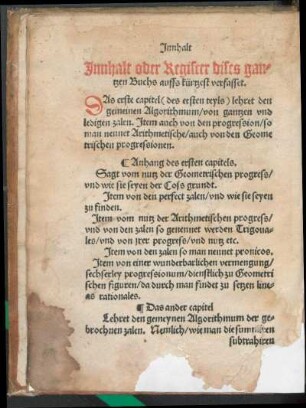 Innhalt
Innhalt oder Register dises gan-
tzen Buchs auffs kürtzest verfasset.
DAs erste capitel (des ersten teyls) lehret den
gemeinen Algorithmum/von gantzen vnd
ledigen zalen. Item auch von den progression/so
man nennet Arithmetische/auch von den Geome
trischen progressionen.
¶ Anhang des ersten capitels.
Sagt vom nutz der Geometrischen progress/
vnd wie sie seyen der Coss grundt.
Item von den perfect zalen/vnd wie sie seyen
zu finden.
Item vom nutz der Arithmetischen progress/
vnd von den zalen so genennet werden Trigona-
les/vnd von jrer progress/vnd nutz etc.
Item von den zalen so man nennet pronicos.
Item von einer wunderbarlichen vermengung/
sechserley progressionum/dienstlich zu Geometri
schen figuren/da durch man findet zu setzen line-
as rationales.
¶ Das ander capitel
Lehret den gemeynen Algorithmum der ge-
brochnen zalen. Nemlich/wie man die summiren
subtrahiren